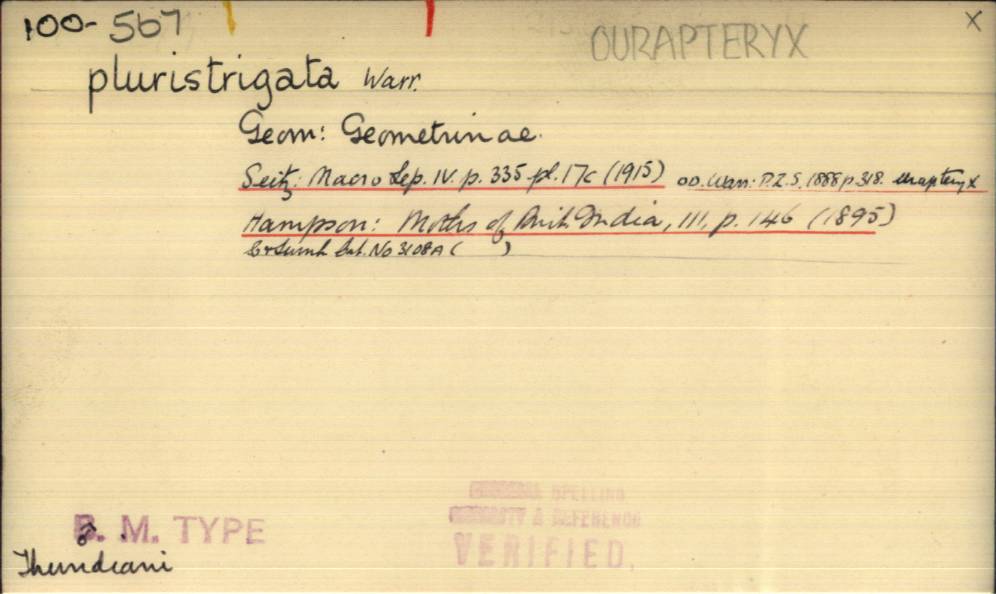 100-567
OURAPTERYX
X
pluristrigata Warr.
Geom: Geometrinae.
Seitz: Macro Lep. IV. p. 335. pl. 17c (1915) OD. Warr: P.Z.S. 1888 p 318. Urapteryx
Hampson: Moths of Brit. India, III, p. 146 (1895)
C & Swinh Cat. No 3108A ( )
SPELLING
& REFERENCE
VERIFIED.
B. M. TYPE
Thundiani